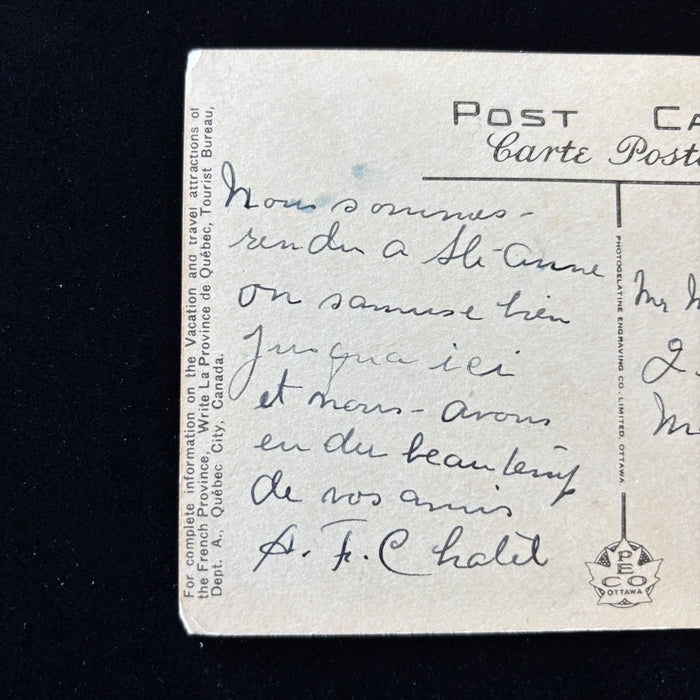 For complete information on the Vacation and travel attractions of
the French Province, Write La Province de Québec, Tourist Bureau,
Dept. A., Québec City, Canada.
POST CA
Carte Posta
Nous sommes-
rendu a Ste-Anne
on samuse bien
jusqua ici
et nous- avons
eu du beau temp
de vos amis
A. F. Chalet
PHOTOGELATINE ENGRAVING CO. LIMITED, OTTAWA
Mr
2
PECO
OTTAWA